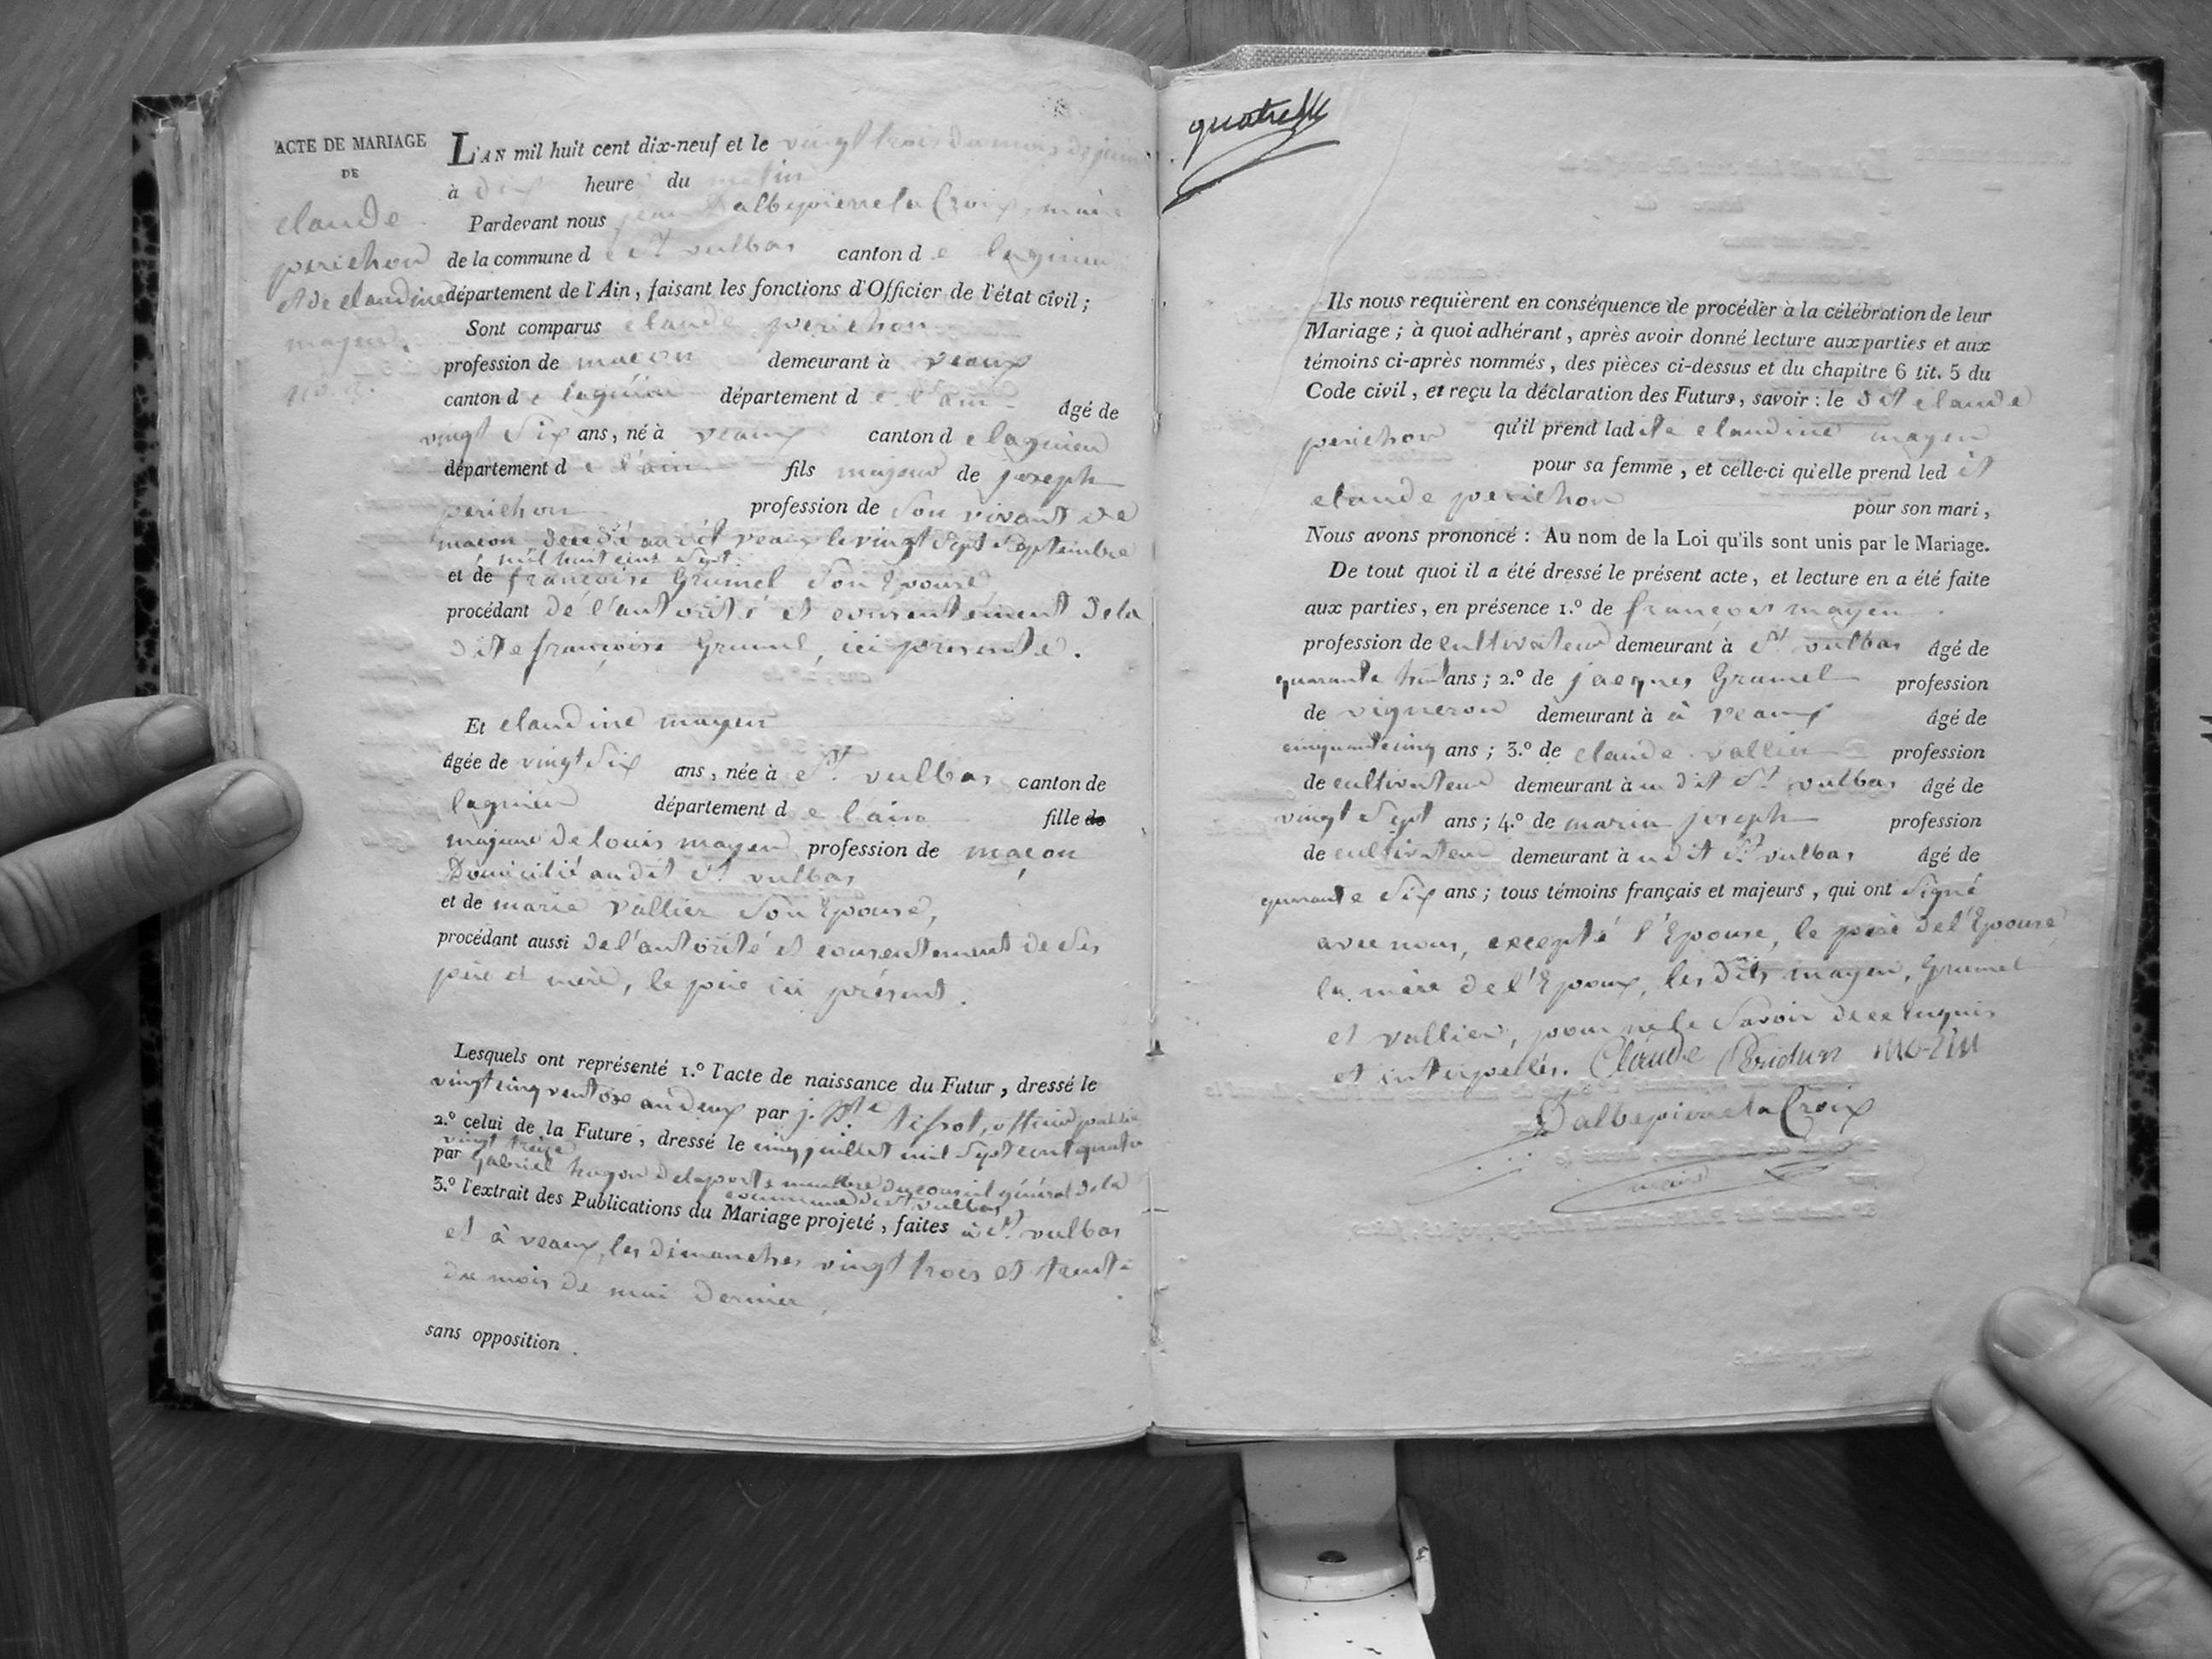 ACTE DE MARIAGE
DE
claude
perichon
et de claudine
mayen
L'AN mil huit cent dix-neuf et le vingt trois du mois de juin
à dix heure du matin
Pardevant nous jean Dalbepierre la Croix, maire
de la commune d e St vulbas canton d e lagnieu
département de l'Ain, faisant les fonctions d'Officier de l'état civil;
Sont comparus claude perichon
profession de macon demeurant à veaux
canton d e lagnieu département d e l'ain âgé de
vingt six ans, né à veaux canton d e lagnieu
département d e l'ain fils majeur de joseph
perichon profession de son vivant de
macon décédé au dit veaux le vingt sept septembre
mil huit cent sept.
et de françoise Grumel son Epouse
procédant de l'autorité et consentement de la
dite françoise Grumel, ici présente.
Et claudine mayen
âgée de vingt six ans, née à St. vulbas canton de
lagnieu département d e l'ain fille de
majeure de louis mayen profession de maçon
Domicilié au dit St vulbas
et de marie vallier son Epouse,
procédant aussi de l'autorité et consentement de ses
père et mère, le père ici présent.
Lesquels ont représenté 1.º l'acte de naissance du Futur, dressé le
vingt cinq ventose an deux par j. Bte tissot, officier public
2.º celui de la Future, dressé le cinq juillet mil sept cent quatre
vingt treize
par Gabriel hugon delaporte membre du conseil général de la
commune de St vulbas
3.º l'extrait des Publications du Mariage projeté, faites à St. vulbas
et à veaux, les dimanches vingt trois et trente
du mois de mai dernier,
sans opposition.
quatre
Ils nous requièrent en conséquence de procéder à la célébration de leur
Mariage; à quoi adhérant, après avoir donné lecture aux parties et aux
témoins ci-après nommés, des pièces ci-dessus et du chapitre 6 tit. 5 du
Code civil, et reçu la déclaration des Futurs, savoir: le dit claude
perichon qu'il prend ladite claudine mayen
pour sa femme, et celle-ci qu'elle prend led it
claude perichon pour son mari,
Nous avons prononcé: Au nom de la Loi qu'ils sont unis par le Mariage.
De tout quoi il a été dressé le présent acte, et lecture en a été faite
aux parties, en présence 1.º de françois mayen
profession de cultivateur demeurant à St vulbas âgé de
quarante huit ans; 2.º de jacques Grumel profession
de vigneron demeurant à à veaux âgé de
cinquante cinq ans; 3.º de claude vallier profession
de cultivateur demeurant à u dit St vulbas âgé de
vingt sept ans; 4.º de marin joseph profession
de cultivateur demeurant à u dit St vulbas âgé de
quarante six ans; tous témoins français et majeurs, qui ont signé
avec nous, excepté l'Epouse, le père de l'Epouse,
la mère de l'Epoux, les dits mayen, Grumel
et vallier, pour ne le savoir de ce enquis
et interpellés. Claude Peridun
Dalbepierrelacroix
maire